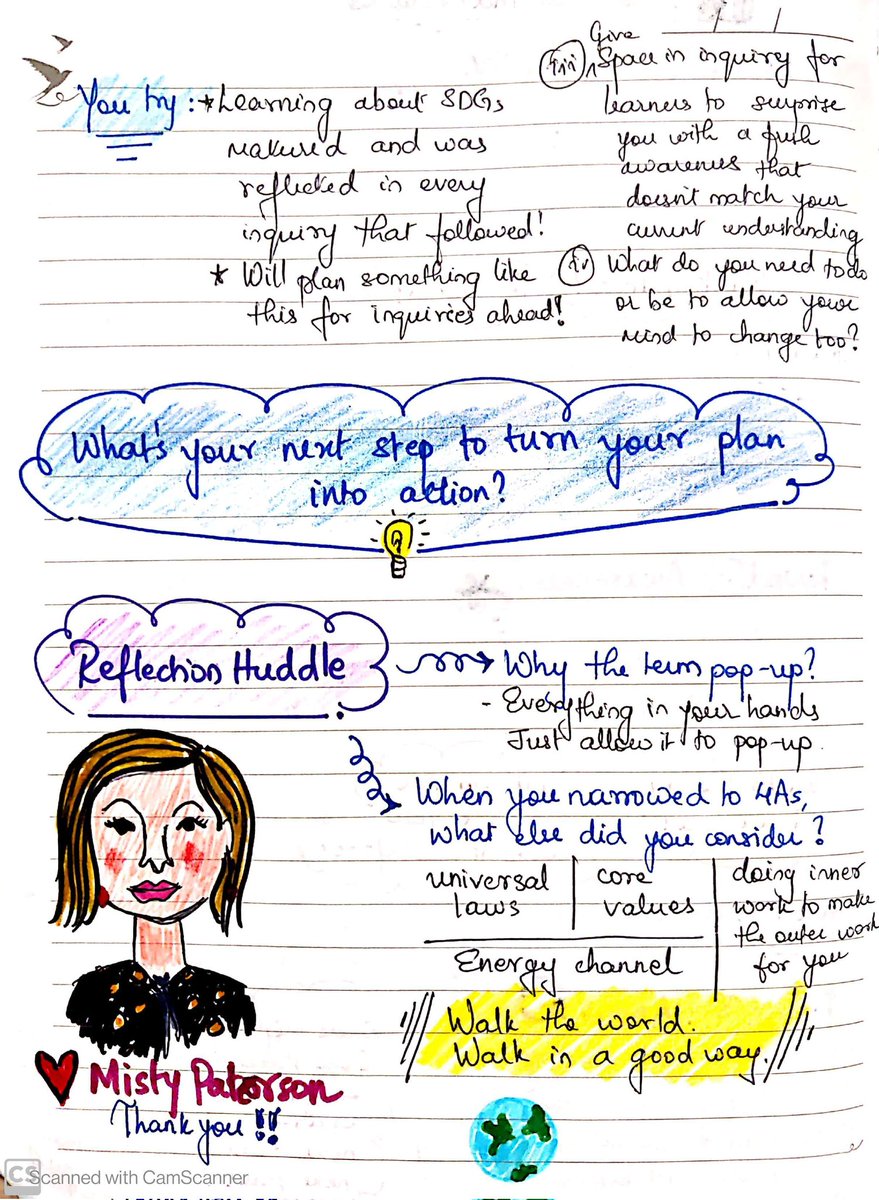 You try : * Learning about SDGs
matured and was
reflected in every
inquiry that followed!
* Will plan something like
this for inquiries ahead!
(iii) Give Space in inquiry for
learners to surprise
you with a fresh
awareness that
doesn't match your
current understanding
(iv) What do you need to do
or be to allow your
mind to change too?
What's your next step to turn your plan
into action?
Reflection Huddle
Why the term pop-up?
- Everything in your hands
Just allow it to pop-up.
When you narrowed to 4As,
what else did you consider?
universal
laws
core
values
doing inner
work to make
the outer work
for you
Energy channel
Walk the world.
Walk in a good way.
Misty Paterson
Thank you !!
CS Scanned with CamScanner